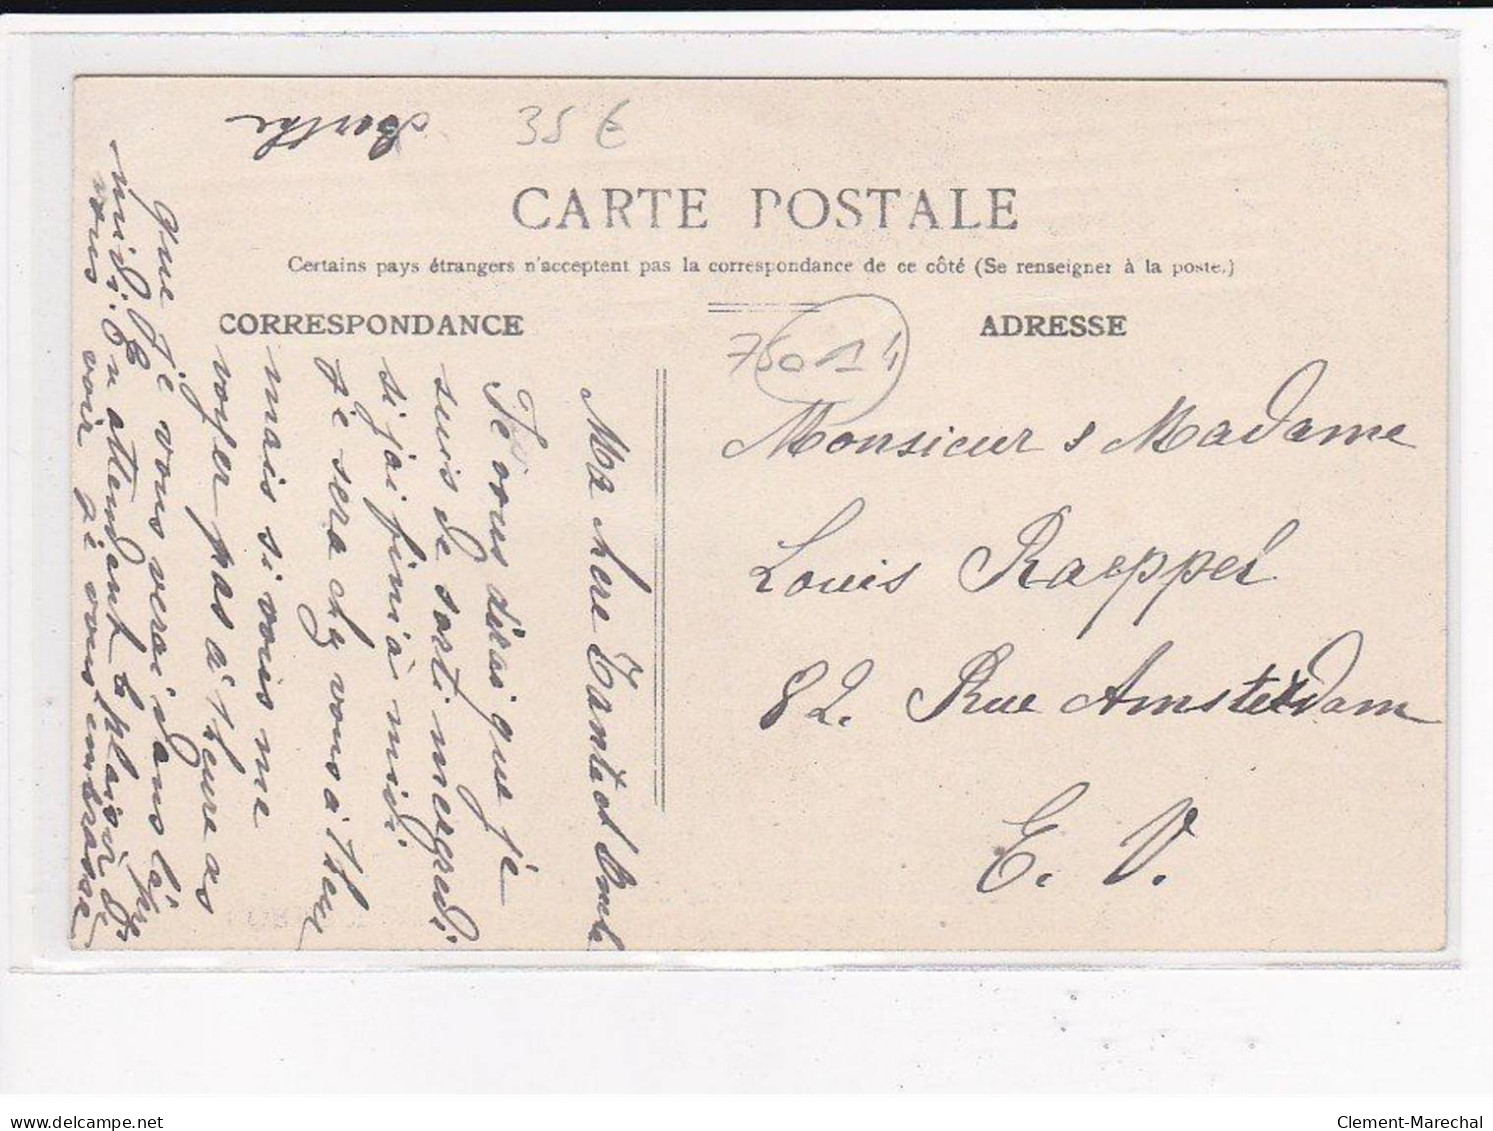 Berthe
35 €
CARTE POSTALE
Certains pays étrangers n'acceptent pas la correspondance de ce côté (Se renseigner à la poste.)
CORRESPONDANCE
ADRESSE
75014
Ma here Tante et
Je vous dirai que jè
suis de sorti mergredi
si j'ai fini à midi.
je sera chez vous a 1 heur
mais si vous me
voyer pas a 1 heure as
que je vous verai dans l'après
midi. En attendent le plaisir de
vous voir gè vous embrasse
Monsieur & Madame
Louis Raeppel
82. Rue Amsterdam
E. V.
delcampe.net
Clement-Marechal